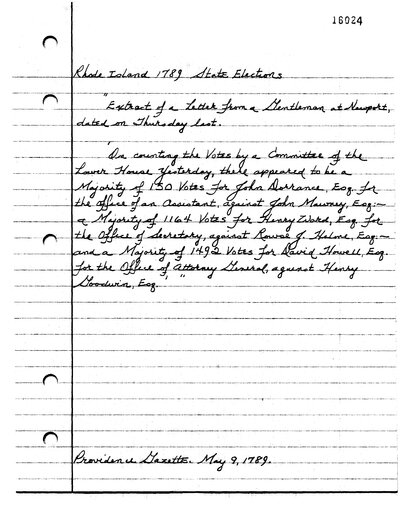 16024
Rhode Island 1789 State Elections
"Extract of a Letter from a Gentleman at Newport,
dated on Thursday last.
'On counting the Votes by a Committee of the
Lower House Yesterday, there appeared to be a
Majority of 150 Votes for John Dorrance, Esq. for
the office of an Assistant, against John Mawney, Esq:—
a Majority of 1164 Votes for Henry Ward, Esq. for
the Office of Secretary, against Rowse J. Helme, Esq:—
and a Majority of 1492 Votes for David Howell, Esq.
for the Office of Attorney General, against Henry
Goodwin, Esq.' "
Providence Gazette. May 9, 1789.